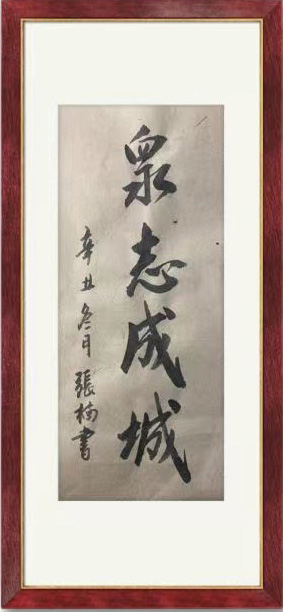 眾志成城
辛丑冬月張楠書